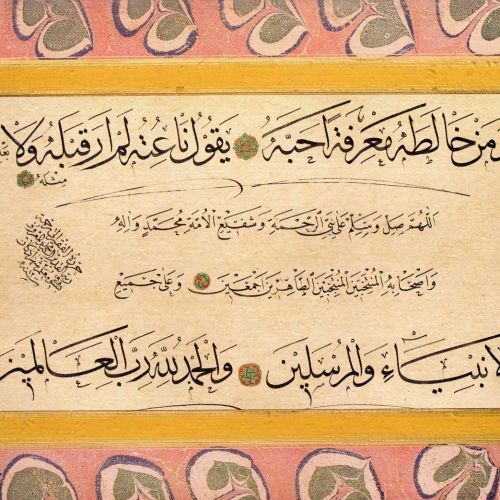 ومن خالطه معرفة احبه يقول ناعته لم ار قبله ولا بعده
مثله
اللهم صل وسلم على نبي الرحمة وشفيع الامة محمد واله
واصحابه المنتخبين الطاهرين اجمعين وعلى جميع
الانبياء والمرسلين والحمد لله رب العالمين